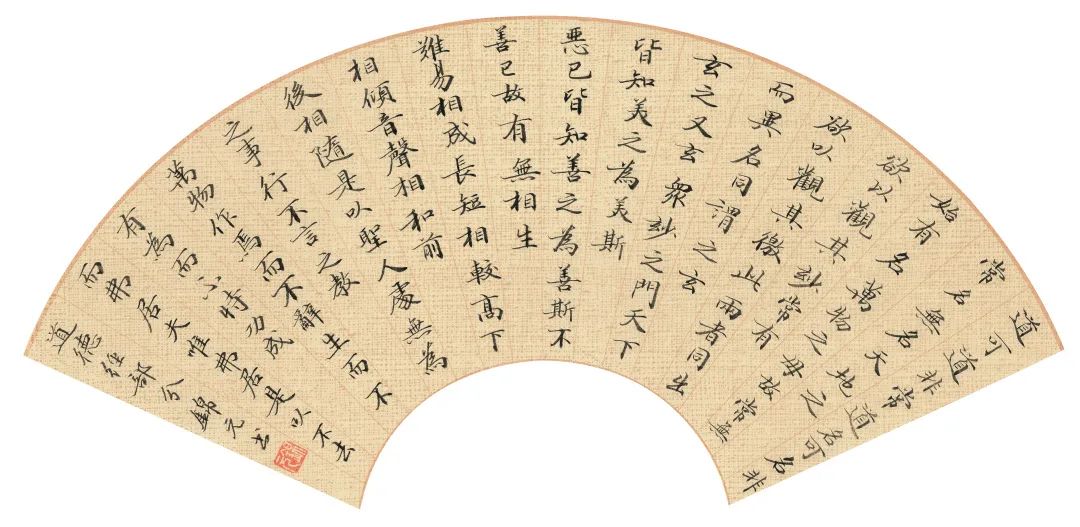 道可道非常道名可名非
常名無名天地之
始有名萬物之母故常無
欲以觀其玅常有
欲以觀其徼此兩者同出
而異名同謂之玄
玄之又玄眾玅之門天下
皆知美之為美斯
惡已皆知善之為善斯不
善已故有無相生
難易相成長短相較高下
相傾音聲相和前
後相隨是以聖人處無為
之事行不言之教
萬物作焉而不辭生而不
有為而不恃功成
而弗居夫唯弗居是以不去
道德經部分錦元書